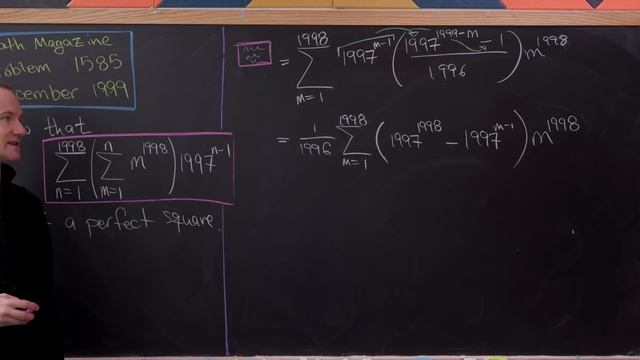 ath Magazine
roblem 1585
cember 1999
s that
\sum_{n=1}^{1998} \left( \sum_{m=1}^{n} m^{1998} \right) 1997^{n-1}
a perfect square.
= \sum_{m=1}^{1998} 1997^{m-1} \left( \frac{1997^{1999-m} - 1}{1996} \right) m^{1998}
= \frac{1}{1996} \sum_{m=1}^{1998} \left( 1997^{1998} - 1997^{m-1} \right) m^{1998}